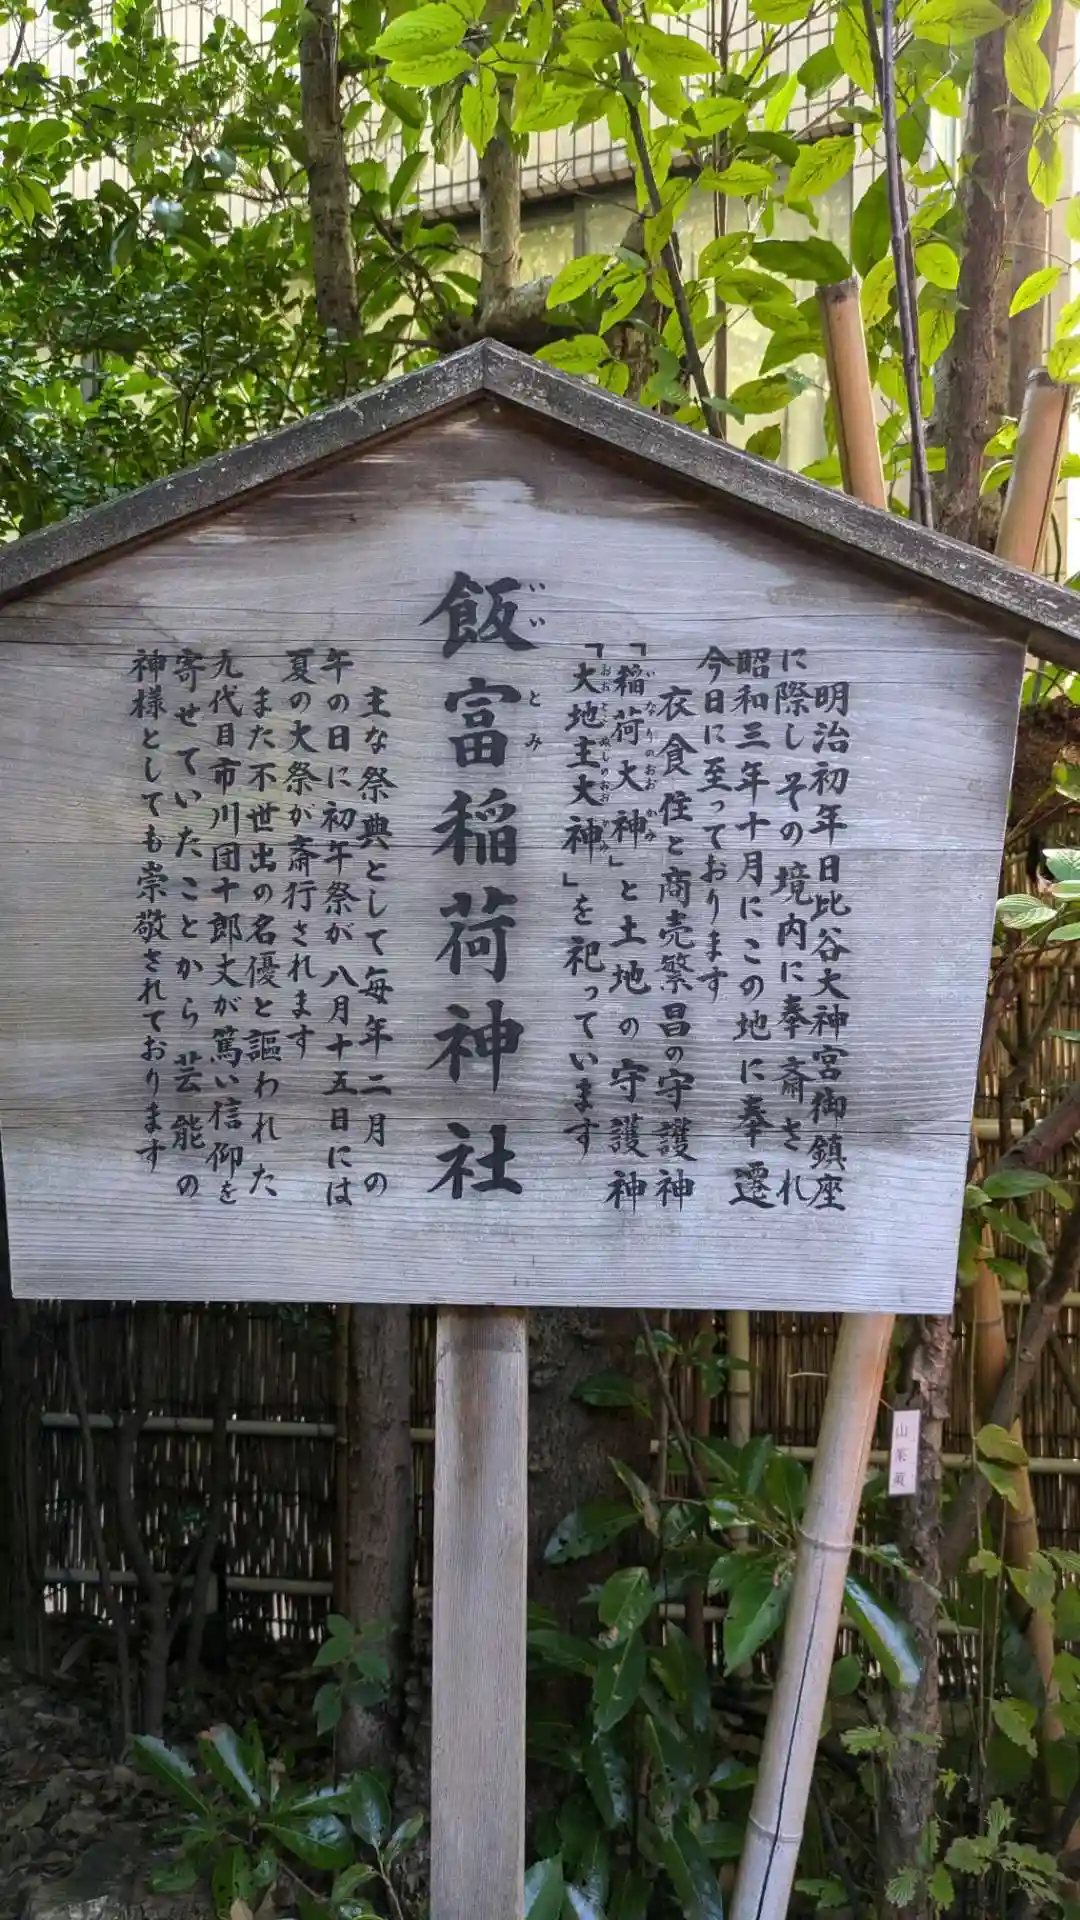 明治初年日比谷大神宮御鎮座
に際しその境内に奉斎され
昭和三年十月にこの地に奉遷
今日に至っております
衣食住と商売繁昌の守護神
「稲荷大神」と土地の守護神
いなりのおおかみ
「大地主大神」を祀っています
おおとこぬしのおおかみ
飯富稲荷神社
いいとみ
主な祭典として毎年二月の
午の日に初午祭が八月十五日には
夏の大祭が斎行されます
また不世出の名優と謳われた
九代目市川団十郎丈が篤い信仰を
寄せていたことから芸能の
神様としても崇敬されております
山茱萸